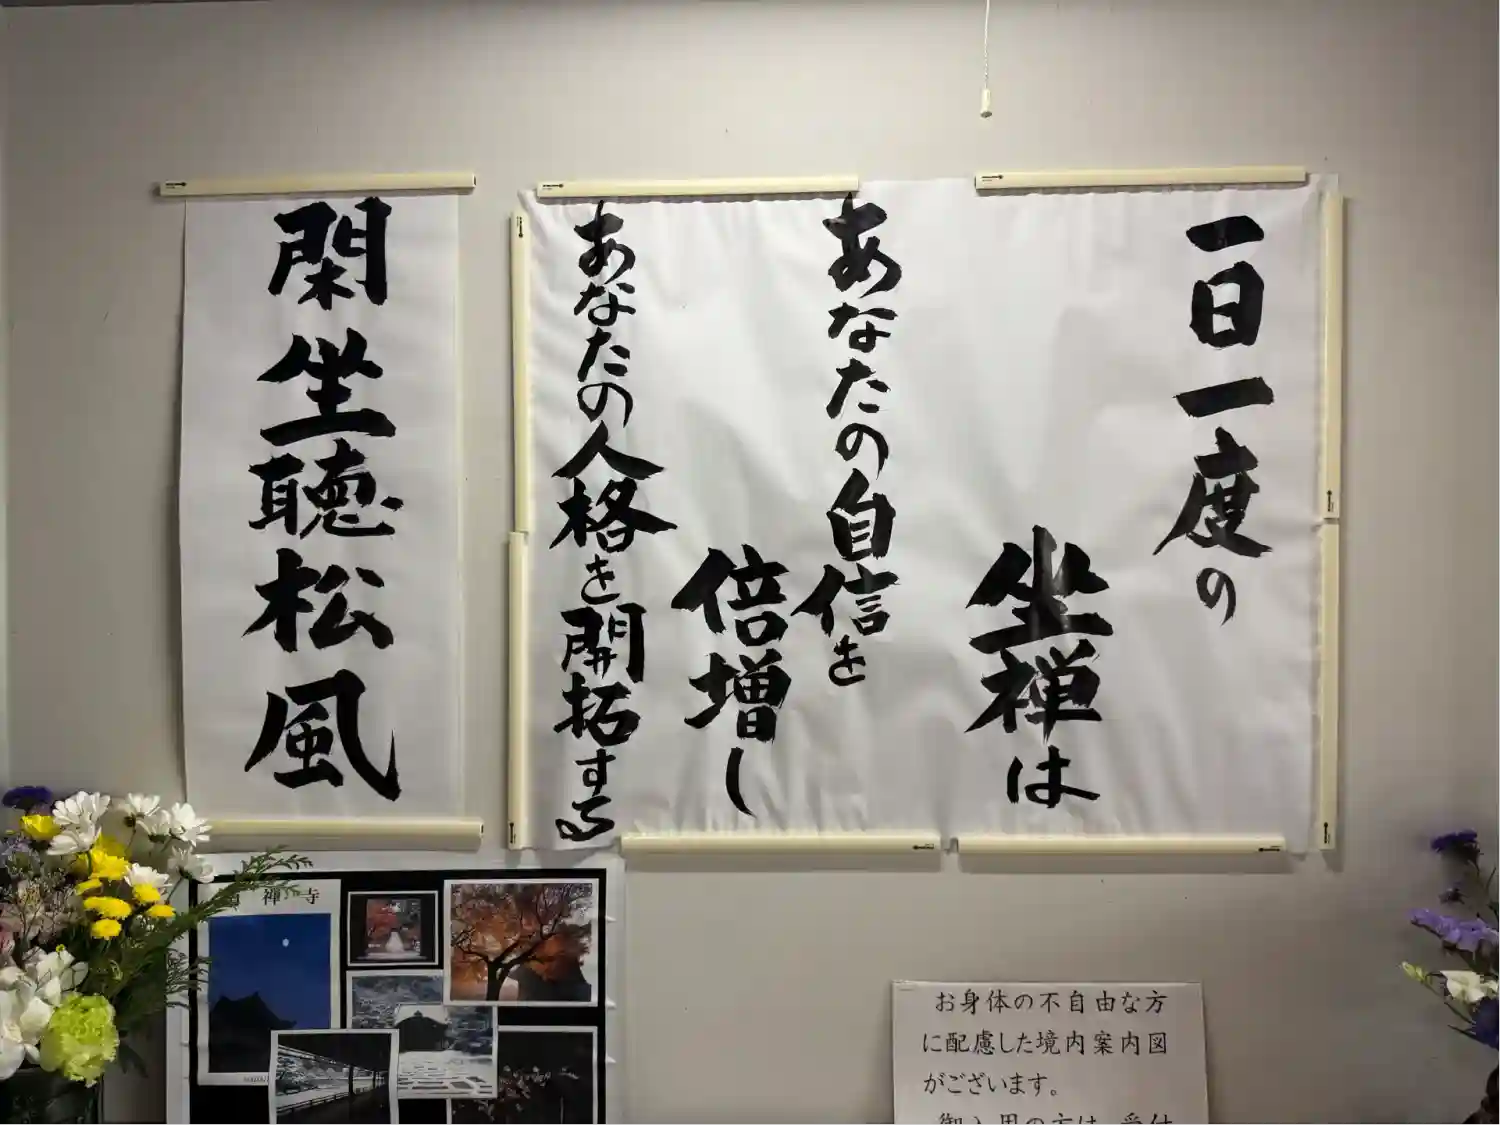 一日一度の
坐禅は
あなたの自信を
倍増し
あなたの人格を開拓する
閑坐聴松風
禅寺
お身体の不自由な方
に配慮した境内案内図
がございます。